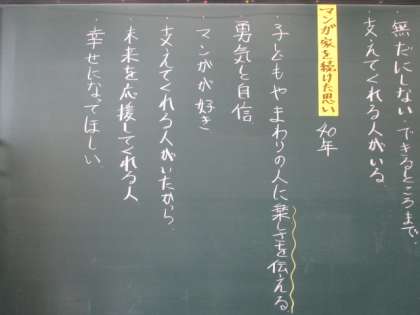 ・無だにしない できるところまで
・支えてくれる人がいる。
マンガ家を続けた思い 40年
・子どもやまわりの人に楽しさを伝える
・勇気と自信
・マンガが好き
・支えてくれる人がいたから。
・未来を応援してくれる人
・幸せになってほしい。